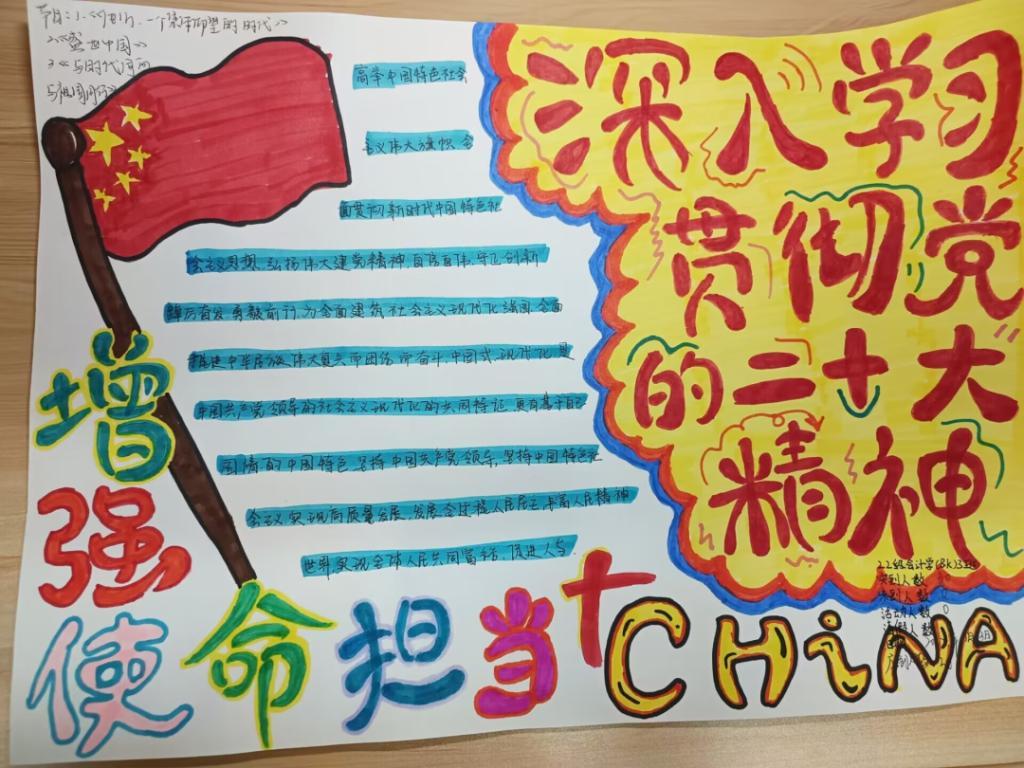 节目:1.
一个
仰望的时代
2.《盛世中国》
3.《与时代同
与祖国同
高举中国特色社会
主义伟大旗帜 全
面贯彻新时代中国特色社
会主义思想，弘扬伟大建党精神，自信自强、守正创新
踔厉奋发、勇毅前行，为全面建筑社会主义现代化强国、全面
推进中华民族伟大复兴而团结而奋斗，中国式现代化是
中国共产党领导的社会主义现代化的共同特征，更有基于自己
国情的中国特色，坚持中国共产党领导，坚持中国特色社
会主义，实现高质量发展，发展全过程人民民主，丰富人民精神
世界，实现全体人民共同富裕，促进人与
深入学习
贯彻党
的二十大
精神
22级会计学(BK)3班
应到人数
实到人数
活动人数 0
请假人数
增
强
使命担当
CHiNA